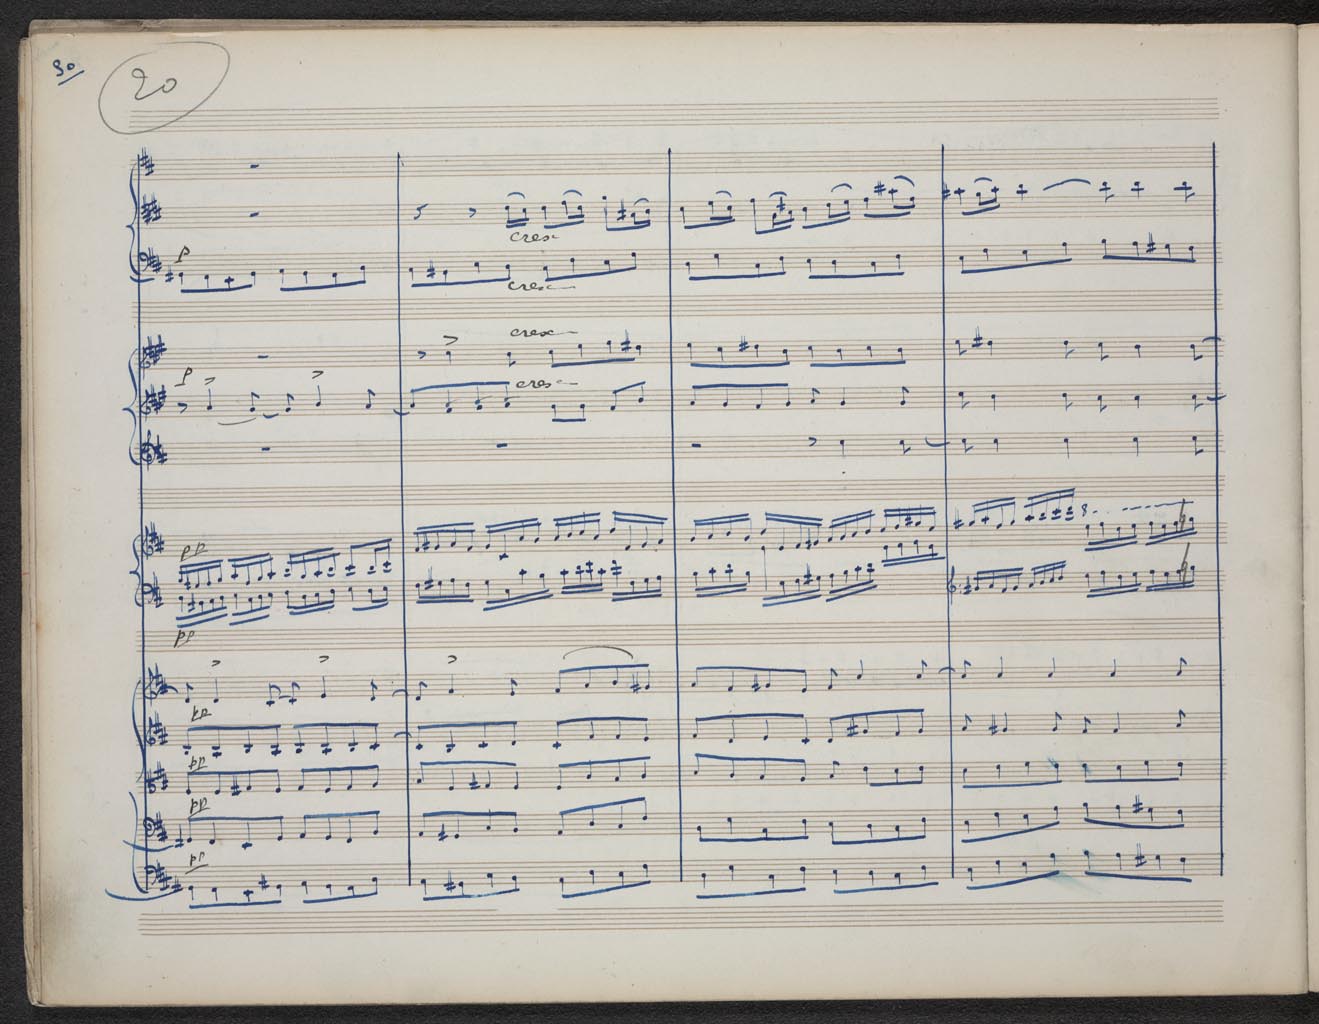 30
20
cresc
p
cresc
cresc
p
cresc
pp
8
pp
pp
pp
pp
pp